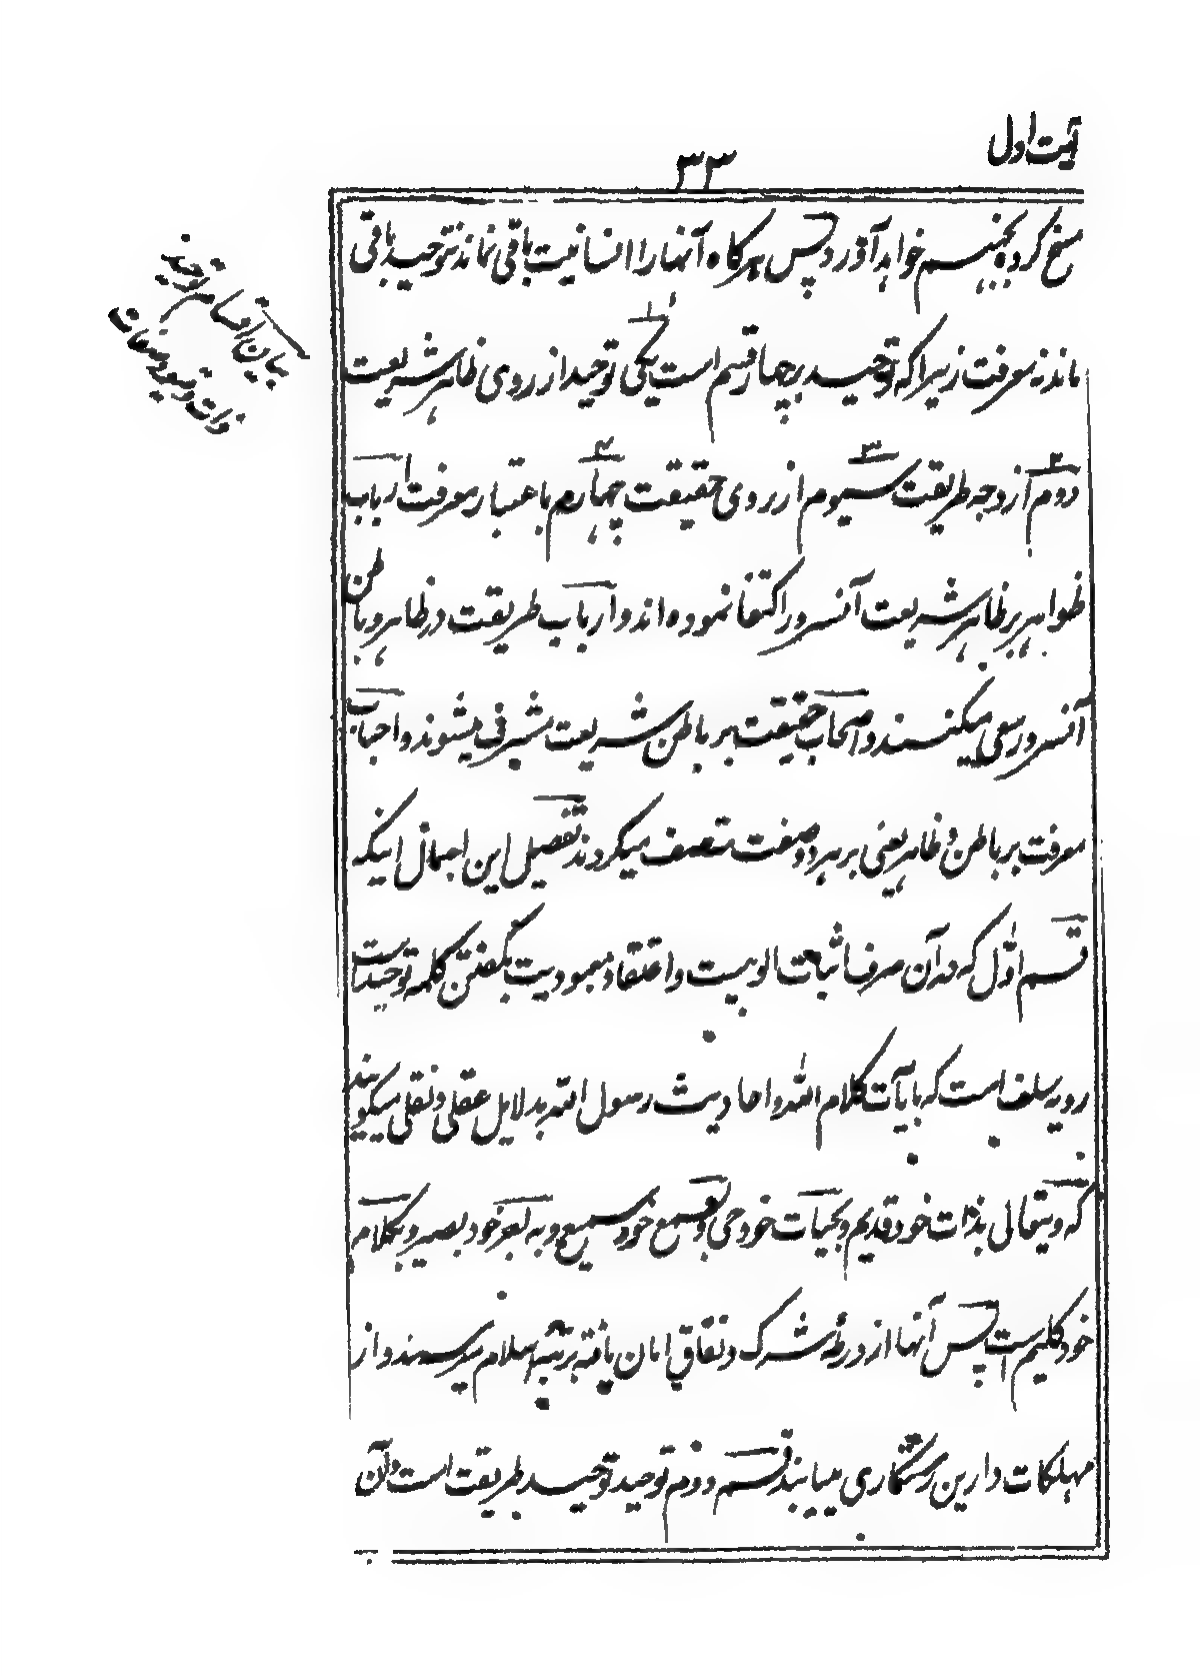 آیت اول
۳۳
مسخ کرده بجهنم خواهد آورد پس هرگاه آنها را انسانیت باقی نماند نه توحید باقی
ماند نه معرفت زیرا که توحید بر چهار قسم است یکی توحید از روی ظاهر شریعت
دوم از وجه طریقت سیوم از روی حقیقت چهارم باعتبار معرفت ارباب
ظواهر بر ظاهر شریعت آنسرور اکتفا نموده اند و ارباب طریقت در ظاهر و باطن
آنسرور سعی میکنند و اصحاب حقیقت بر باطن شریعت مشرف میشوند و احباب
معرفت بر باطن و ظاهر یعنی بر هر دو صفت متصف میگردند تفصیل این اجمال اینکه
قسم اول که در آن صرف اثبات الوهیت و اعتقاد معبودیت بگفتن کلمه توحید است
رویه سلف است که بآیات کلام الله و احادیث رسول الله بدلایل عقلی و نقلی میگویند
که ویتعالی بذات خود قدیم و بحیات خود حی و بسمع خود سمیع و به بصر خود بصیر و بکلام
خود کلیم است پس آنها از ورطهٔ شرک و نفاق امان یافته برتبه اسلام میرسند و از
مهلکات دارین رستگاری مییابند قسم دوم توحید توحید طریقت است و آن
بیان اقسام توحید
ذات و صفات